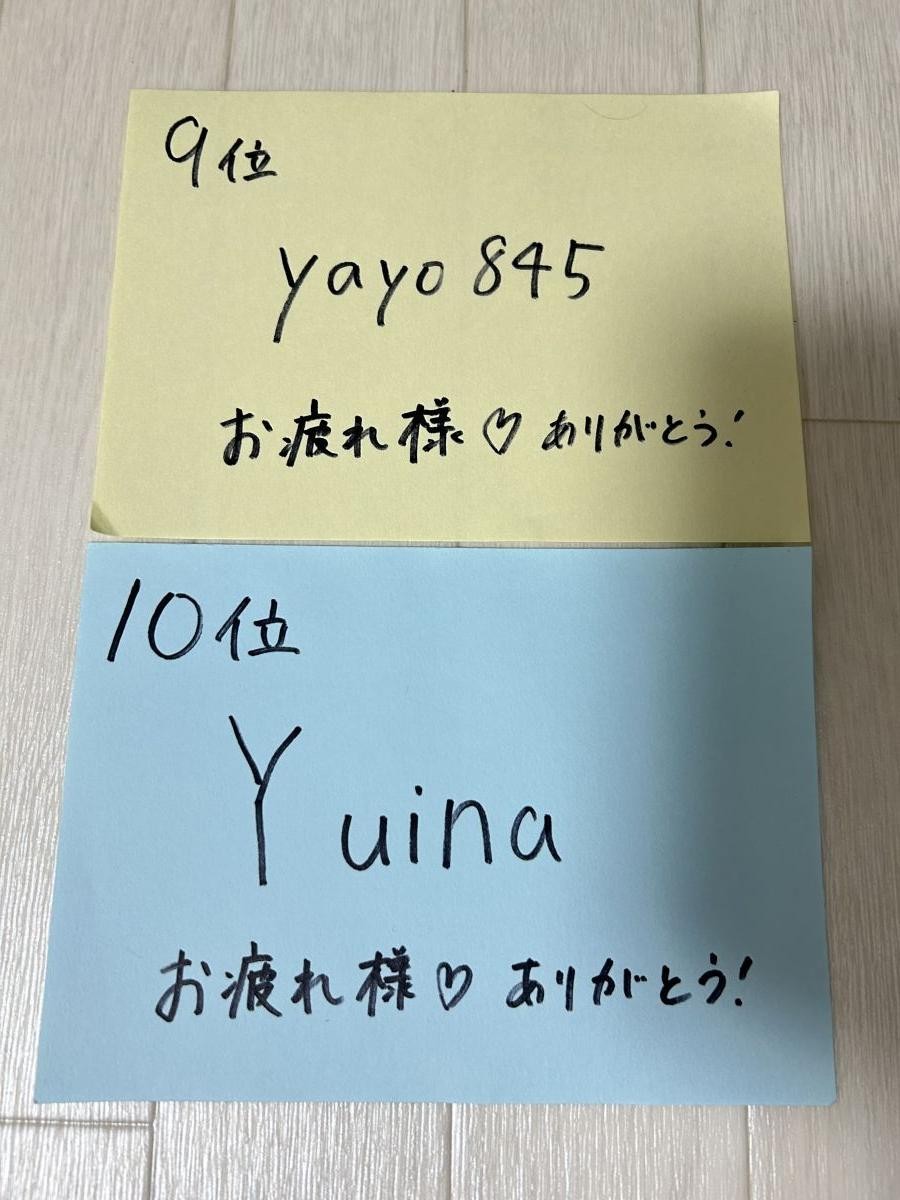 9位
yayo845
お疲れ様♡ありがとう!
10位
Yuina
お疲れ様♡ありがとう!